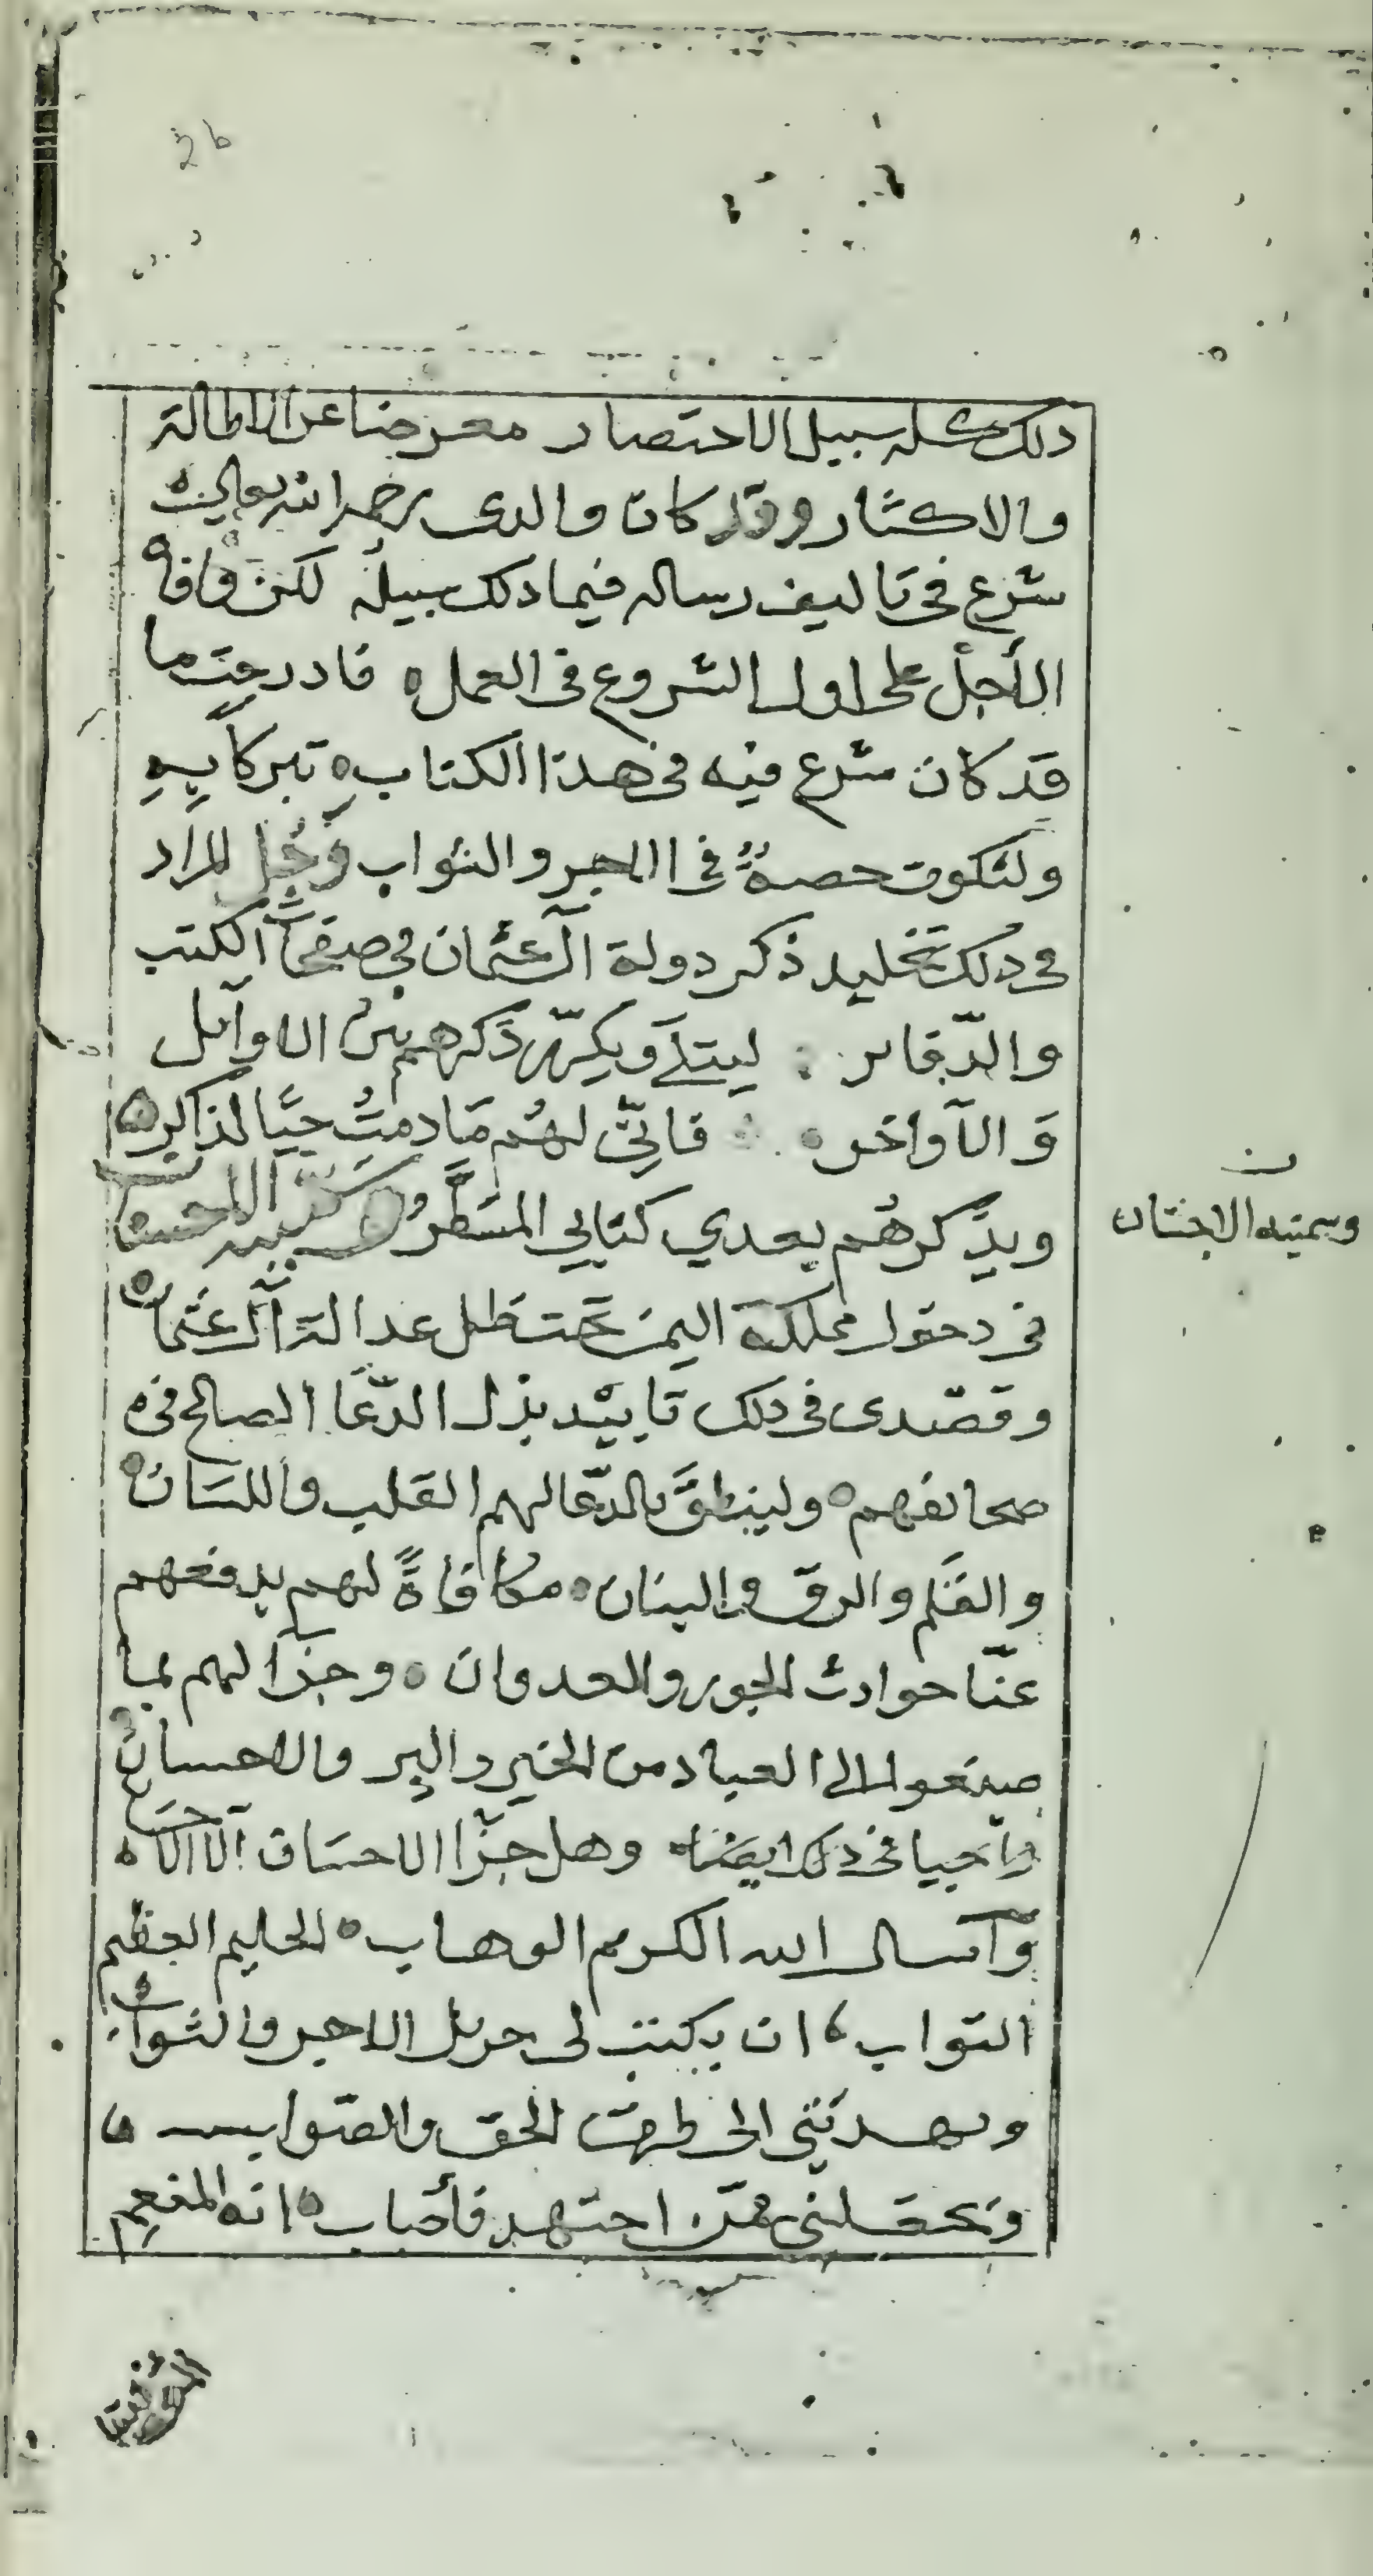 2b
ذلك سبيل الاختصار معرضا عن الاطالة
والاكثار وقد كان والدى رحمه الله تعالى
شرع فى تاليف رساله فيما ذلك سبيله لكن وافاه
الأجل على اول الشروع فى العمل فادرجت ما
قد كان شرع فيه فى هذا الكتاب تبركا به
ولتكون حصة فى الاجر والثواب وجل المراد
فى ذلك تخليد ذكر دولة آل عثمان فى صفحات الكتب
والدفاتر ليتلى ويكرر ذكرهم بين الاوايل
والآواخر فانى لهم ما دمت حيا لذاكر
ويذكرهم بعدي كتابي المسطر وسميته الاحسان
فى دخول مملكة اليمن تحت ظل عدالة آل عثمان
وقصدى فى ذلك تاييد بذل الدعا الصالح فى
صحائفهم ولينطق بالدعا لهم القلب واللسان
والقلم والرق والبنان مكافاة لهم بدفعهم
عنا حوادث الجور والعدوان وجزا لهم بما
صنعوا الى العباد من الخير والبر والاحسان
فى ذلك ايضا وهل جزا الاحسان الا الاحسان
وآسال الله الكريم الوهاب الحليم العظيم
التواب ان يكتب لى جزيل الاجر والثواب
ويهدينى الى طرق الحق والصواب
ويجعلنى ممن اجتهد فأصاب انه المنعم
ن
وسميته الاحسان